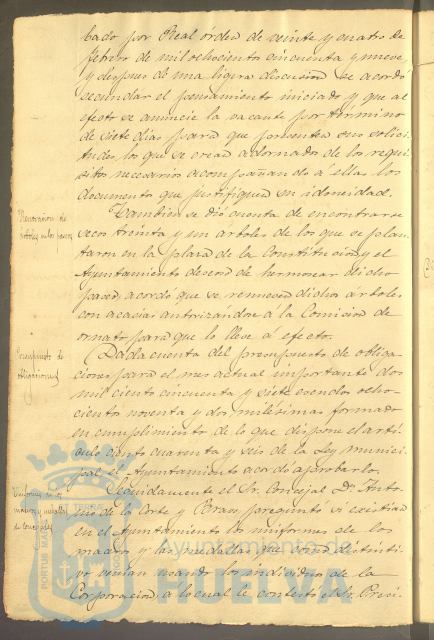 bado por Real órden de veinte y cuatro de
febrero de mil ochocientos cincuenta y nueve,
y despues de una ligera discusion se acordó
secundar el pensamiento iniciado y que al
efecto se anuncie la vacante por término
de siete dias para que presenten sus solici-
tudes los que se crean adornados de los requi-
sitos necesarios acompañando á ellas los
documentos que justifiquen su idoneidad.
Tambien se dió cuenta de encontrarse
secos treinta y un arboles de los que se plan-
taron en la plaza de la Constitucion y el
Ayuntamiento deseoso de hermosear dicho
paseo, acordó que se renueven dichos árboles
con acacias autorizandose á la Comision de
ornato para que lo lleve á efecto.
Dada cuenta del presupuesto de obliga-
ciones para el mes actual importante dos
mil ciento cincuenta y siete escudos ocho-
cientos noventa y dos milésimas formado
en cumplimiento de lo que dispone el artí-
culo ciento cuarenta y seis de la Ley munici-
pal el Ayuntamiento acordó aprobarlo.
Seguidamente el Sr. Concejal Dn. Anto-
nio de la Corte y Bravo preguntó si existian
en el Ayuntamiento los uniformes de los
y las medallas que como distinti-
vo venian usando los individuos de la
Corporacion, a lo cual le contestó el Sr. Presi-
Renovacion de
árboles en los paseos
Presupuesto de
obligaciones
Uniformes de
y medallas
de concejales
PORTUS MARIS
Ayuntamiento de
HUELVA